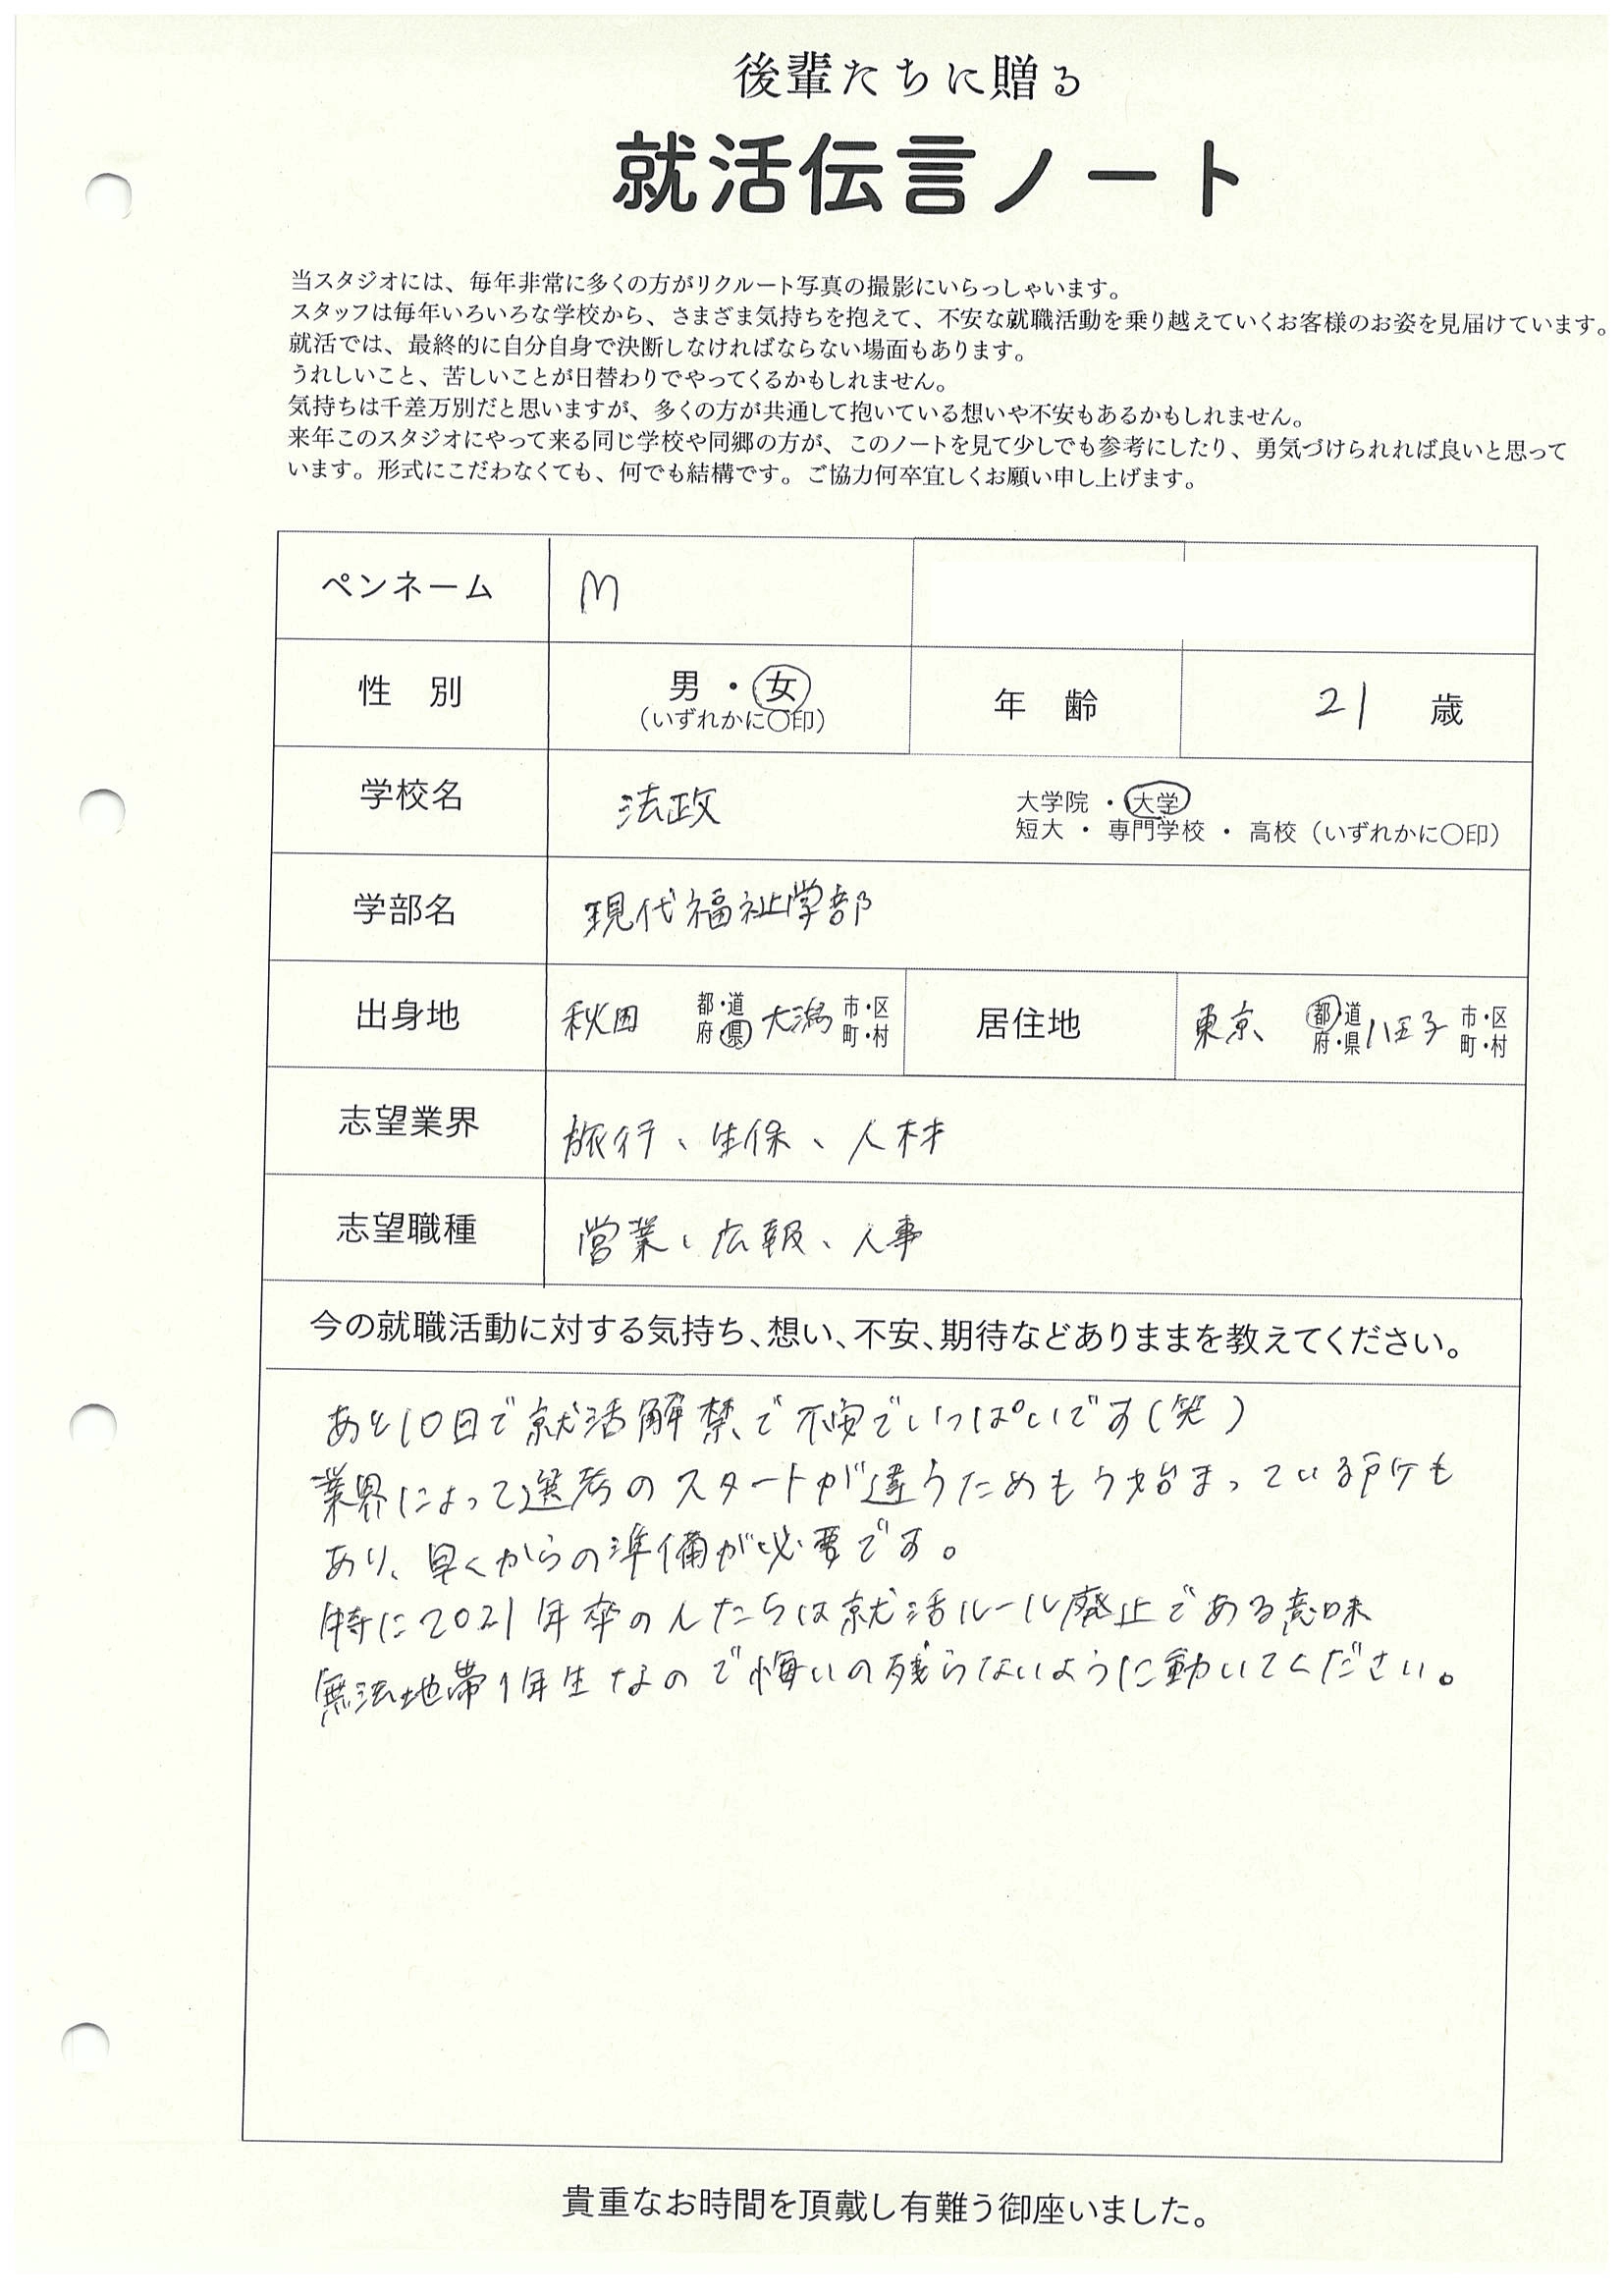 後輩たちに贈る
就活伝言ノート
当スタジオには、毎年非常に多くの方がリクルート写真の撮影にいらっしゃいます。
スタッフは毎年いろいろな学校から、さまざま気持ちを抱えて、不安な就職活動を乗り越えていくお客様のお姿を見届けています。
就活では、最終的に自分自身で決断しなければならない場面もあります。
うれしいこと、苦しいことが日替わりでやってくるかもしれません。
気持ちは千差万別だと思いますが、多くの方が共通して抱いている想いや不安もあるかもしれません。
来年このスタジオにやって来る同じ学校や同郷の方が、このノートを見て少しでも参考にしたり、勇気づけられれば良いと思って
います。形式にこだわなくても、何でも結構です。ご協力何卒宜しくお願い申し上げます。
ペンネーム M
性 別 男 ・ 女 (いずれかに〇印) 年 齢 21 歳
学校名 法政 大学院 ・ 大学
短大 ・ 専門学校 ・ 高校 (いずれかに〇印)
学部名 現代福祉学部
出身地 秋田 都・道 府・県 大潟 市・区 町・村 居住地 東京 都・道 府・県 八王子 市・区 町・村
志望業界 旅行、生保、人材
志望職種 営業、広報、人事
今の就職活動に対する気持ち、想い、不安、期待などありままを教えてください。
あと10日で就活解禁で不安でいっぱいです(笑)
業界によって選考のスタートが違うためもう始まっている所も
あり、早くからの準備が必要です。
特に2021年卒の人たちは就活ルール廃止である意味
無法地帯1年生なので悔いの残らないように動いてください。
貴重なお時間を頂戴し有難う御座いました。